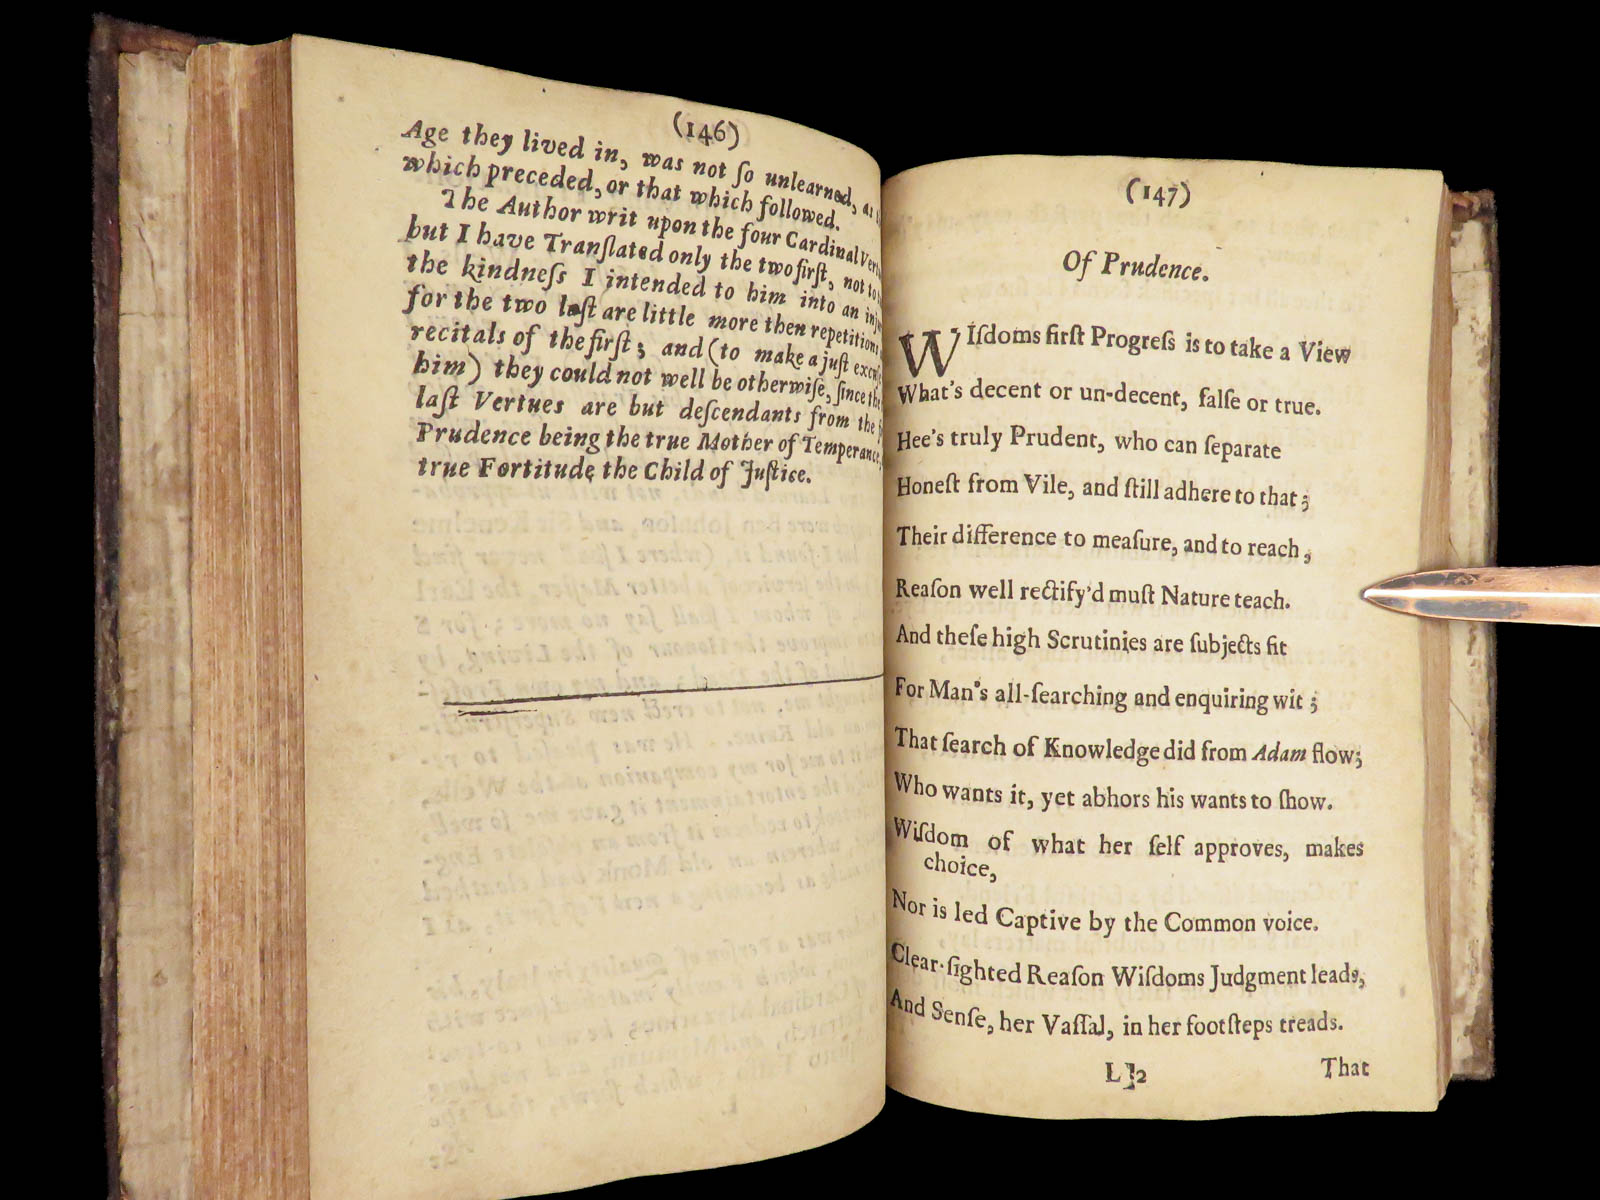 (146)
Age they lived in, was not ſo unlearned, as
which preceded, or that which followed.
The Author writ upon the four Cardinal
but I have Tranſlated only the two firſt, not to
the kindneſs I intended to him into an
for the two laſt are little more then repetitions
recitals of the firſt; and (to make a juſt excuſe
him) they could not well be otherwiſe, ſince the
laſt Vertues are but deſcendants from the
Prudence being the true Mother of Temperance,
true Fortitude the Child of Juſtice.
(147)
Of Prudence.
WIſdoms firſt Progreſs is to take a View
What's decent or un-decent, falſe or true.
Hee's truly Prudent, who can ſeparate
Honeſt from Vile, and ſtill adhere to that;
Their difference to meaſure, and to reach,
Reaſon well rectify'd muſt Nature teach.
And theſe high Scrutinies are ſubjects fit
For Man's all-ſearching and enquiring wit;
That ſearch of Knowledge did from Adam flow;
Who wants it, yet abhors his wants to ſhow.
Wiſdom of what her ſelf approves, makes
choice,
Nor is led Captive by the Common voice.
Clear-ſighted Reaſon Wiſdoms Judgment leads,
And Senſe, her Vaſſal, in her footſteps treads.
L 2 That